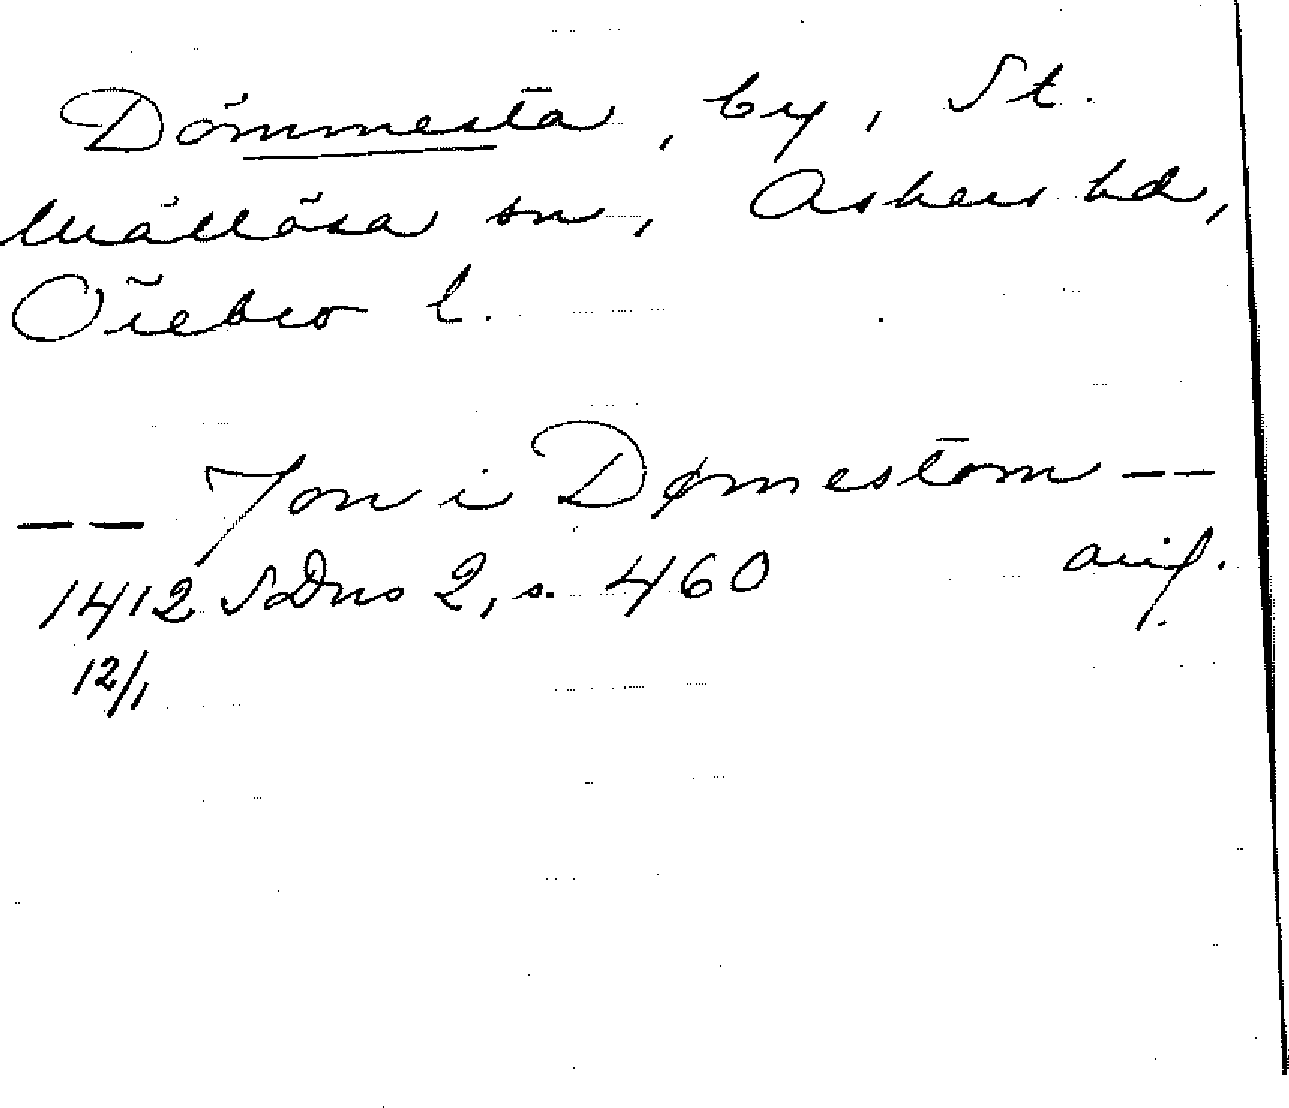 Dömmesta, by, St.
Mällösa sn, Askers hd,
Örebro l.
-- Jon i Dømestom --
1412 SDns 2, s. 460 avs.
12/1